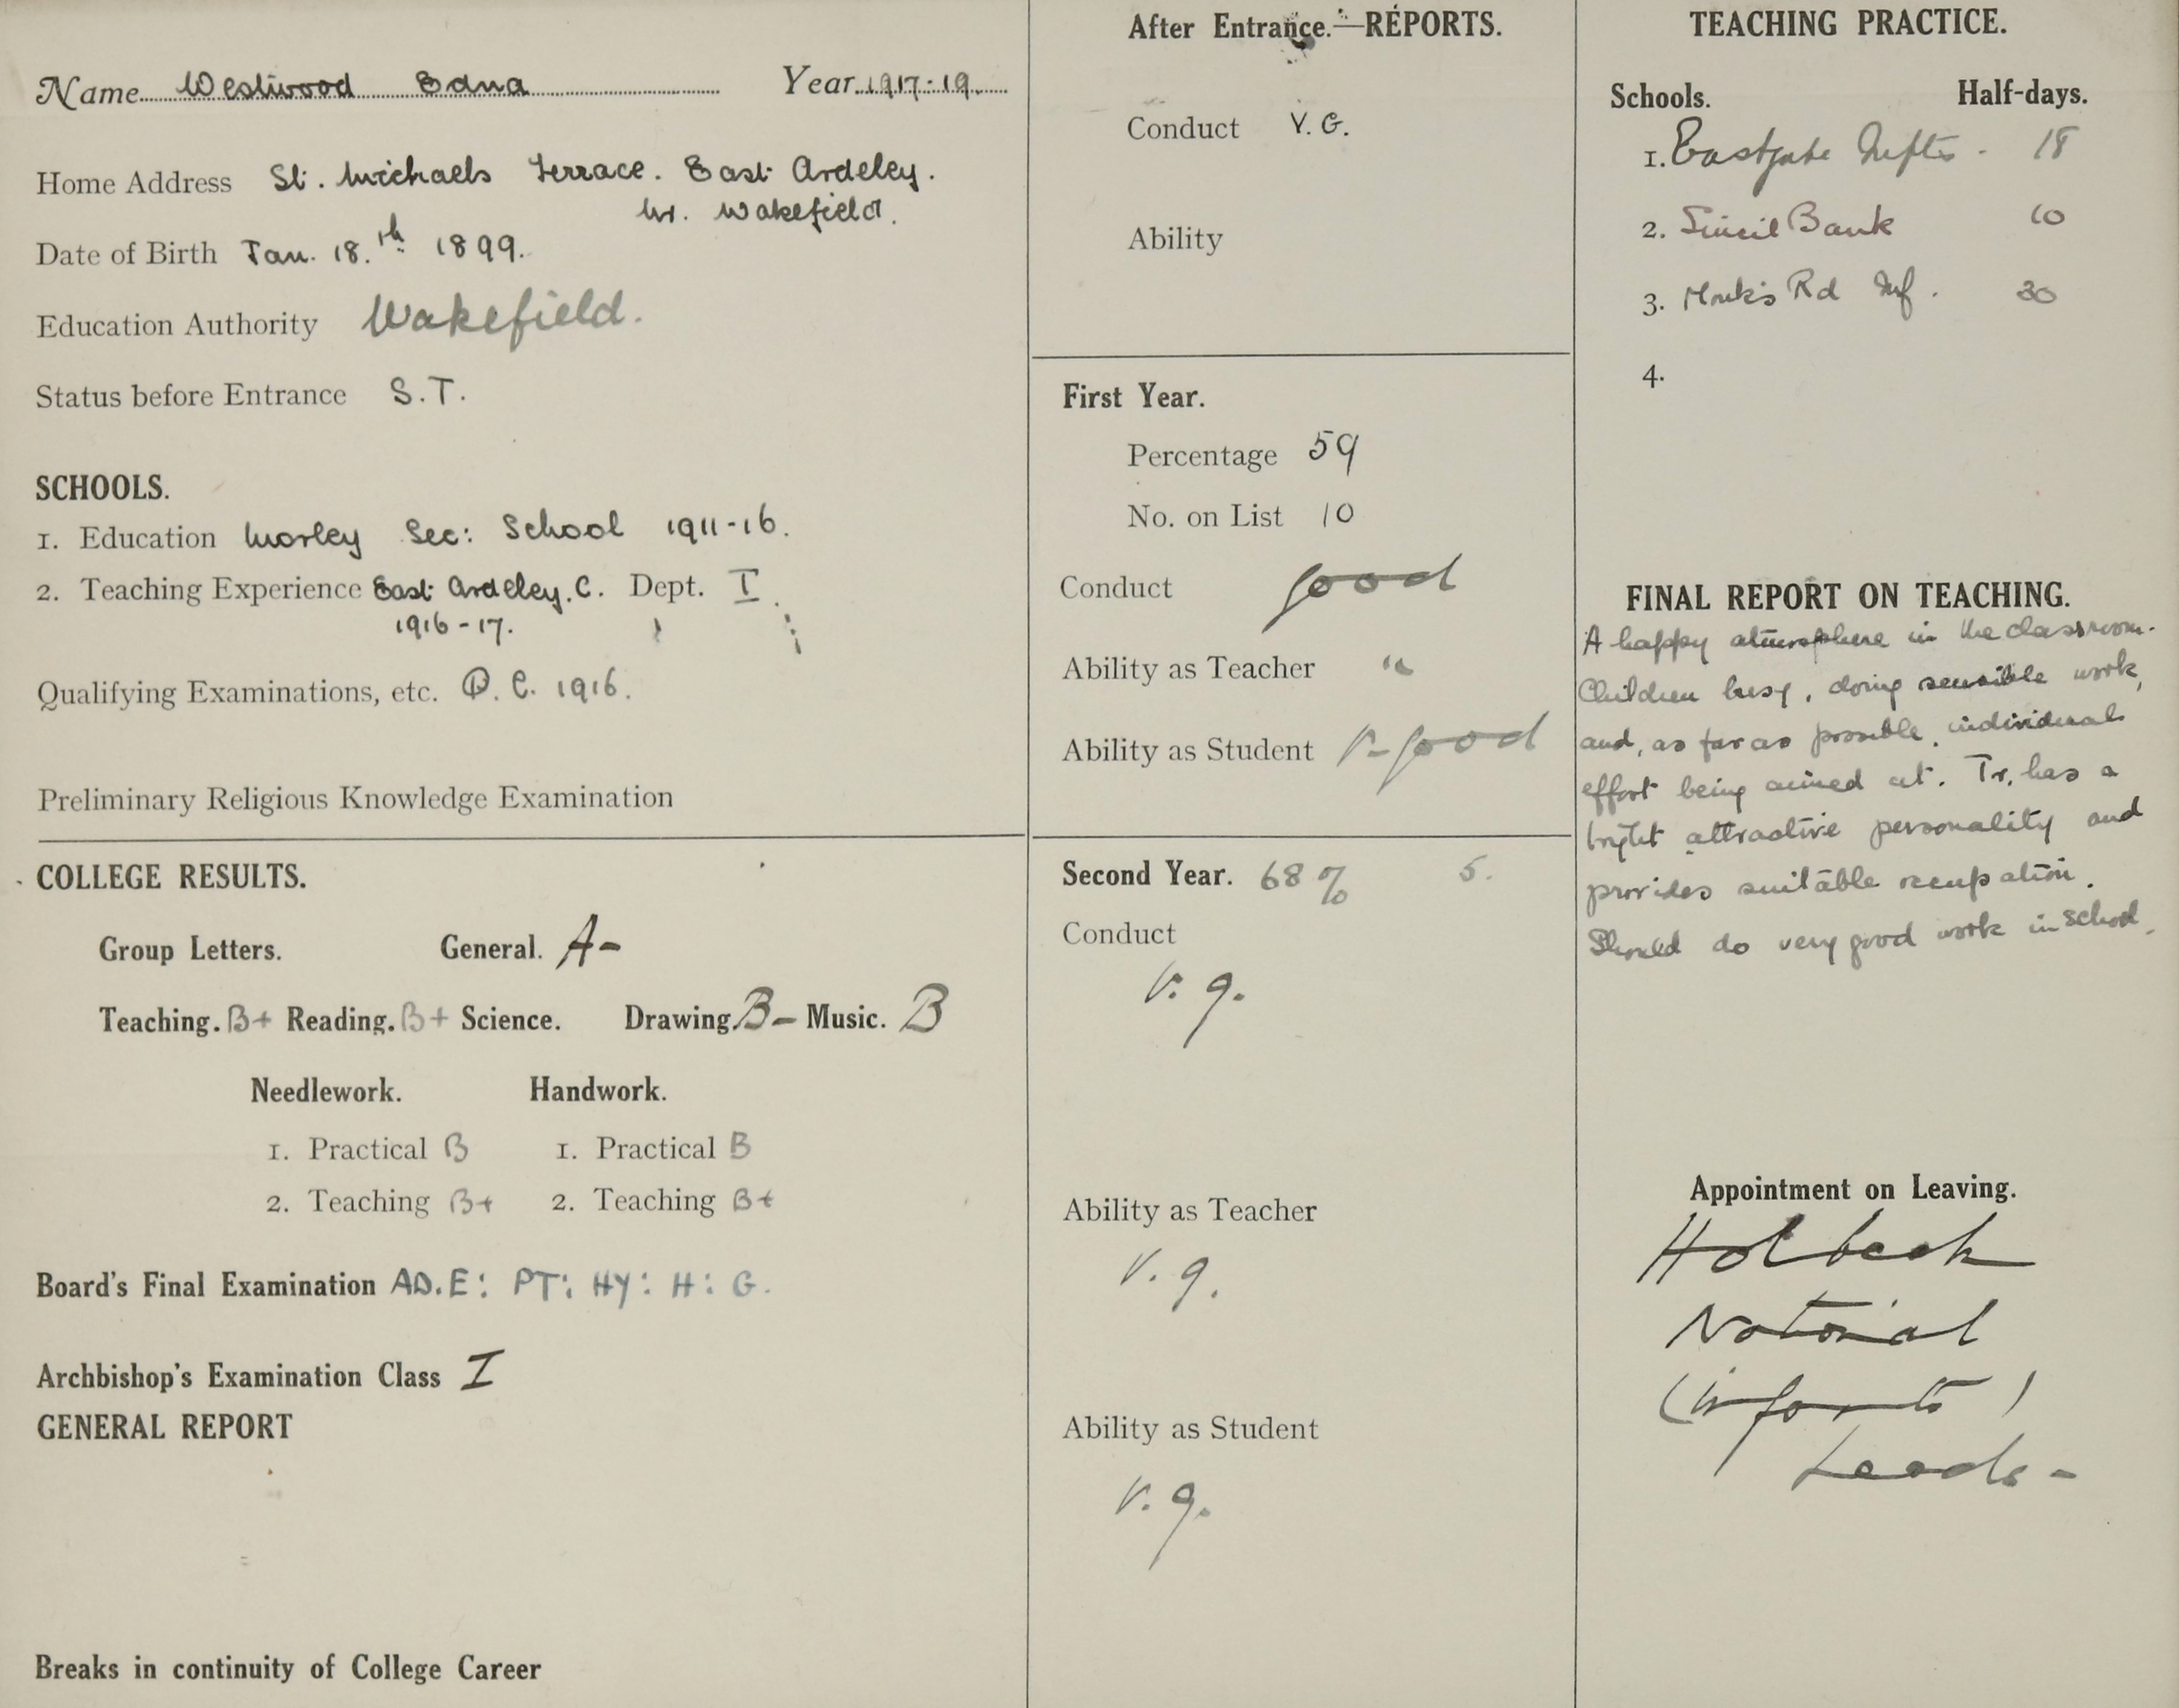 Name Westwood Edna Year 1917-19
Home Address St. Michaels Terrace. East Ardsley.
Nr. Wakefield.
Date of Birth Jan. 18.th 1899.
Education Authority Wakefield.
Status before Entrance S.T.
SCHOOLS.
1. Education Morley Sec: School 1911-16.
2. Teaching Experience East Ardsley. C. Dept. I.
1916-17.
Qualifying Examinations, etc. P. C. 1916.
Preliminary Religious Knowledge Examination
COLLEGE RESULTS.
Group Letters. General. A-
Teaching. B+ Reading. B+ Science. Drawing. B- Music. B
Needlework. Handwork.
1. Practical B 1. Practical B
2. Teaching B+ 2. Teaching B+
Board's Final Examination AD. E: PT: HY: H: G.
Archbishop's Examination Class I
GENERAL REPORT
Breaks in continuity of College Career
After Entrance.—REPORTS.
Conduct V. G.
Ability
First Year.
Percentage 59
No. on List 10
Conduct good
Ability as Teacher "
Ability as Student V-good
Second Year. 68% 5.
Conduct
V. g.
Ability as Teacher
V. g.
Ability as Student
V. g.
TEACHING PRACTICE.
Schools. Half-days.
1. Eastgate Infts. 18
2. Sincil Bank 10
3. Monk's Rd Inf. 30
4.
FINAL REPORT ON TEACHING.
A happy atmosphere in the classroom.
Children busy, doing sensible work,
and, as far as possible, individual
effort being aimed at. Tr. has a
bright attractive personality and
provides suitable occupation.
Should do very good work in school.
Appointment on Leaving.
Holbeck
National
(Infants)
Leeds-